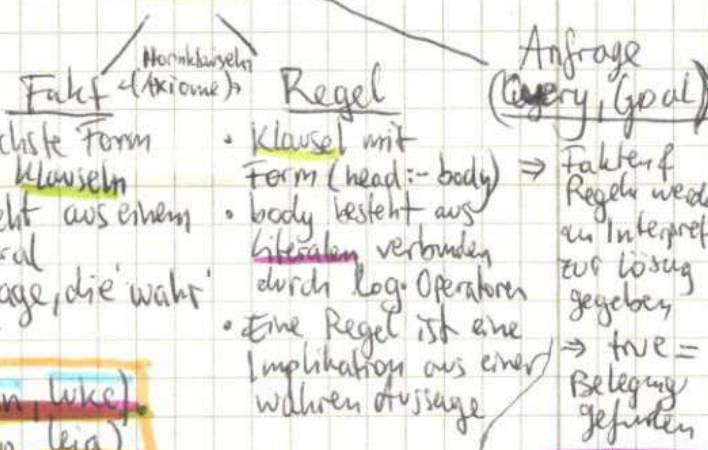 Hornklauseln
Fakt <(Axiome)>
chste Form
Klauseln
eht aus einem
ral
age, die 'wahr'
n, luke).
leia)
Regel
• Klausel mit
Form (head :- body)
• body besteht aus
Literalen verbunden
durch log. Operatoren
• Eine Regel ist eine
Implikation aus einer
wahren Aussage
Anfrage
(Query, Goal)
⇒ Fakten &
Regeln werde
an Interpret
zur Lösung
gegeben
⇒ true =
Belegung
gefunden